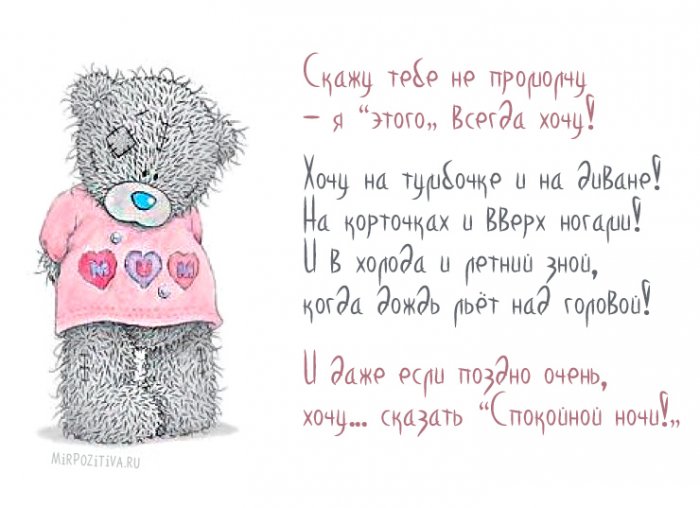 Скажу тебе не промолчу
– я “этого„ всегда хочу!
Хочу на тумбочке и на диване!
На корточках и вверх ногами!
И в холода и летний зной,
когда дождь льёт над головой!
И даже если поздно очень,
хочу... сказать “Спокойной ночи!„
MUM
MiRPOZiTiVA.RU